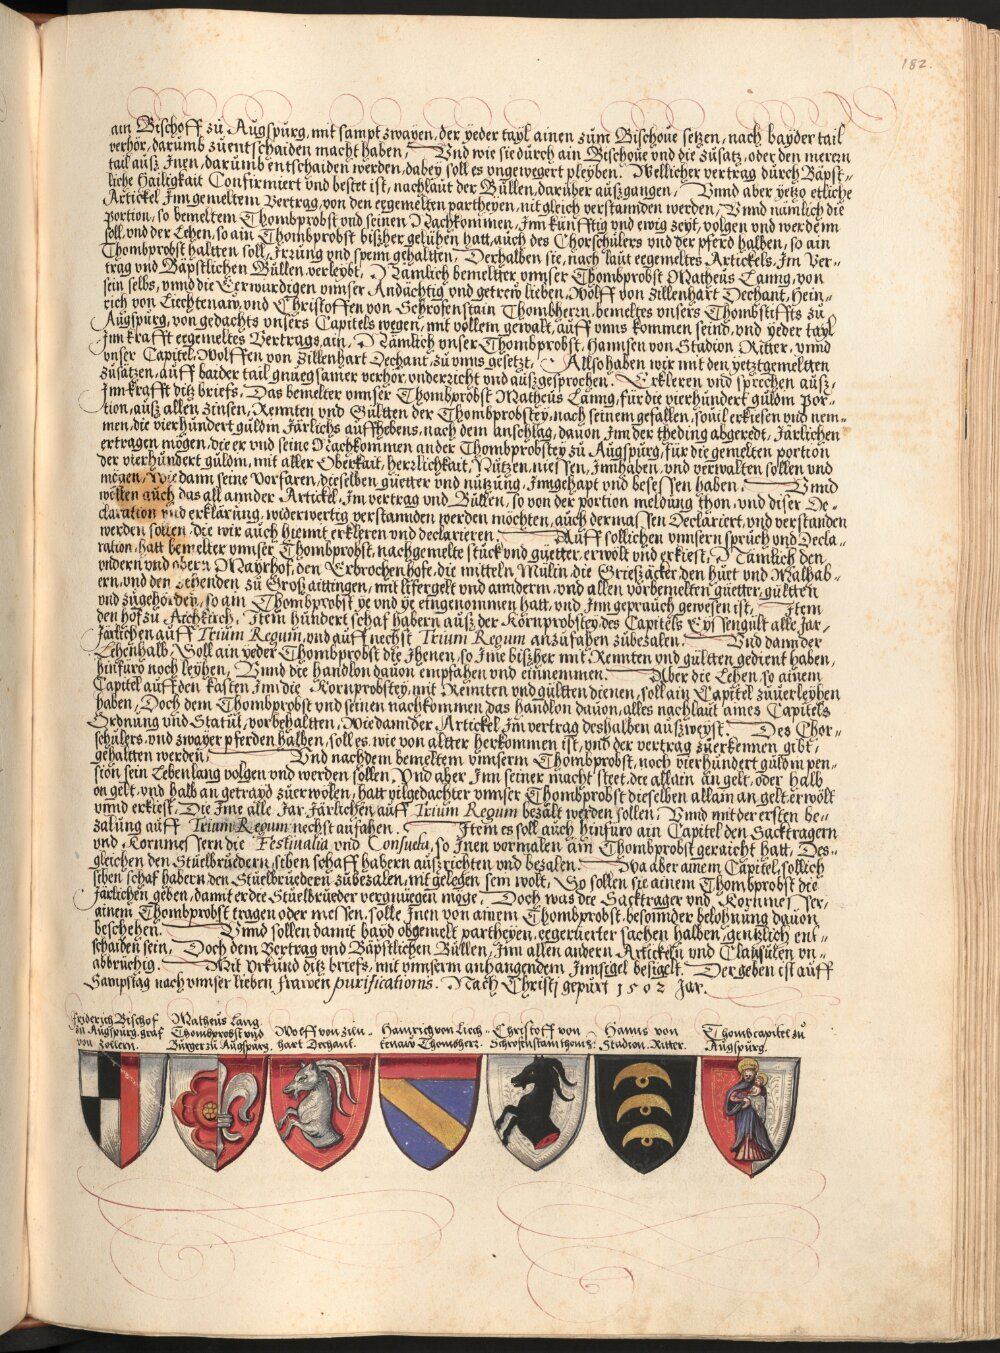 182.
ain Bischoff zu Augspurg, mit sampt zwayen, der yeder tayl ainen zum Bischoue setzen, nach bayder tail
verhör, darumb zuentschaiden macht haben, Vnd wie sie durch ain Bischoue vnd die zusatz, oder den merern
tail auß Inen, darumb entschaiden werden, dabey soll es vngewegert pleyben. Wellicher vertrag durch Bäpst-
liche Hailigkait Confirmiert vnd bestet ist, nachlaut der Bullen, darüber außgangen, Vnnd aber yetzo etliche
Artickel Inn gemeltem Vertrag, von den ergemelten partheyen, nit gleich verstannden werden, Vnnd nämlich die
portion, so bemeltem Thombprobst vnd seinen Nachkommen, Inn künfftig vnd ewig zeyt, volgen vnd werdenn
soll, vnd der Lehen, so ain Thombprobst bißher gelühen hatt, auch des Chorschülers vnd der pferd halben, so ain
Thombprobst haltten soll, Irrung vnd spenn gehaltten, Derhalben sie, nach laut ergemeltes Artickels, Im Ver-
trag vnd Bäpstlichen Bullen, verleybt, Nämlich bemeltter vnnser Thombprobst Matheus Lanng, von
sein selbs, vnnd die Eerwurdigen vnnser Andächtig vnd getrew lieben, Wolff von Zillenhart Dechant, Hein-
rich von Liechtenaw, vnd Christoffen von Schrofenstain Thombherrn, bemeltes vnsers Thombstiffts zu
Augspurg, von gedachts vnsers Capitels wegen, mit vollem gewalt, auff vnns kommen seind, vnd yeder tayl
Inn krafft ergemeltes Vertrags, ain, Nämlich vnser Thombprobst, Hannsen von Stadion Ritter, vnnd
vnser Capitel, Wolffen von Zillenhart Dechant, zu vnns gesetzt, Also haben wir mit den yetztgemeltten
zusätzen, auff baider tail gnuegsamer verhör, vnderricht vnd außgesprochen. Erkleren vnd sprechen auß,
Inn krafft ditz briefs, Das bemelter vnnser Thombprobst Matheus Lanng, für die vierhundert guldin Por-
tion, auß allen zinsen, Rennten vnd Gülltten der Thombprobstey, nach seinem gefallen, souil erkiesen vnd nem-
men, die vierhundert guldin Järlichs auffhebens, nach dem anschlag, dauon Inn der theding abgeredt, Järlichen
ertragen mögen, die er vnd seine Nachkommen an der Thombprobstey zu Augspurg, für die gemelten portion
der vierhundert guldin, mit aller Oberkait, herrlichkait, Nützen, niessen, Innhaben, vnd verwalten sollen vnd
mögen, Wie dann seine Vorfaren, dieselben güetter vnd nutzung, Inngehapt vnd besessen haben. Vnnd
wöllen auch das all annder Artickel, Im vertrag vnd Bullen, so von der portion meldung thon, vnd diser De-
claration vnd erklärung, widerwertig verstannden werden möchten, auch dermassen Declariert, vnd verstanden
werden sollen, die wir auch hiemit erkleren vnd declarieren. Auff sollichen vnnsern spruch vnd Decla-
ration, hatt bemelter vnnser Thombprobst, nachgemelte stuck vnd güetter, erwölt vnd erkiest, Nämlich den
vndern vnd obern Mayrhof, den Erbrochen hofe, die mitteln Mülin, die Grießäcker, den hurt vnd Malhab-
ern, vnd den zehenden zu Großaittingen, mit lifergelt vnd annderm, vnd allen vorbemelten güetter, gültten
vnd zugehörden, so ain Thombprobst ye vnd ye eingenommen hatt, vnd Inn geprauch gewesen ist, Item
den hof zu Aichkirch, Item hundert schaf habern auß der Kornprobstey, des Capitels Eyssengült alle Jar,
Järlichen auff Trium Regum, vnd auff nechst Trium Regum anzufahen zubezalen. Vnd dann der
Lehenhalb, Soll ain yeder Thombprobst die Ihenen, so Ime bißher mit Rennten vnd gültten gedient haben,
hinfuro noch leyhen, Vnnd die handlon dauon empfahen vnd einnemmen. Aber die Lehen, so ainem
Capitel auff den Kasten Inn die Kornprobstey, mit Rennten vnd gültten dienen, soll ain Capitel zuuerleyhen
haben, Doch dem Thombprobst vnd seinen nachkommen das handlon dauon, alles nachlaut aines Capitels
Ordnung vnd Statut, vorbehaltten, Wie dann der Artickel, Im vertrag deshalben außweyst. Des Chor-
schülers, vnd zwayer pferden halben, soll es, wie von altter herkommen ist, vnd der vertrag zuerkennen gibt,
gehaltten werden, Vnd nachdem bemeltem vnnserm Thombprobst, noch vierhundert guldin pen-
sion sein Lebenlang volgen vnd werden sollen, Vnd aber Inn seiner macht steet, die allain an gelt, oder halb
an gelt, vnd halb an getrayd zuerwölen, hatt vilgedachter vnnser Thombprobst dieselben allain an gelt erwölt
vnnd erkiest, Die Ime alle Jar, Järlichen auff Trium Regum bezalt werden sollen, Vnnd mit der ersten be-
zalung auff Trium Regum nechst anfahen. Item es soll auch hinfuro ain Capitel den Sacktragern
vnd Kornmessern die Festinalia vnd Consueta, so Inen vormalen ain Thombprobst geraicht hatt, Des-
gleichen den Stüelbruedern, siben schaff habern außrichten vnd bezalen. Wa aber ainem Capitel, sollich
siben schaf habern, den Stüelbruedern zubezalen, nit gelegen sein wolt, So sollen sie ainem Thombprobst die
Järlichen geben, damit er die Stüelbrueder vergnuegen müge, Doch was die Sacktrager vnd Kornmesser,
ainem Thombprobst tragen oder messen, solle Inen von ainem Thombprobst, besonnder belohnung dauon
beschehen. Vnnd sollen damit bayd obgemelt partheyen, ergeruerter sachen halben, genntzlich ent-
schaiden sein, Doch dem Vertrag vnd Bäpstlichen Bullen, Inn allen andern Artickeln vnd Clausulen vn-
abbruchig. Mit Vrkund ditz briefs, mit vnnserm anhangendem Innsigel besigelt. Der geben ist auff
Sampstag nach vnnser lieben frawen purificationis. Nach Christi gepurt 1502 Jar.
Friderich Bischof
zu Augspurg, graf
von Zollern.
Matheus Lang
Thombprobst vnd
Burger zu Augspurg.
Wolff von Zün-
hart Dechant.
Hainrich von Liech-
tenaw Thombherr.
Christoff von
Schrofenstain thomh:
Hanns von
Stadion. Ritter.
Thombcapitel zu
Augspurg.